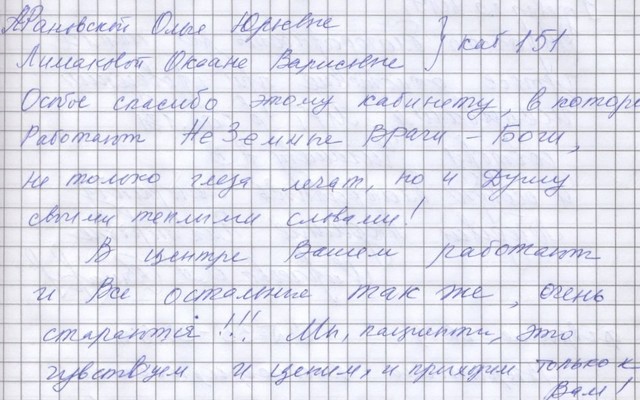 Рановской Ольге Юрьевне } каб 151
Лимаковой Оксане Варисовне
Особое спасибо этому кабинету, в котором
Работают НеЗемные Врачи – Боги,
не только глаза лечат, но и Душу
своими теплыми словами!
В центре Вашем работают
и Все остальные так же, очень
стараются!!! Мы, пациенты, это
чувствуем и ценим, и приходим только к
Вам!